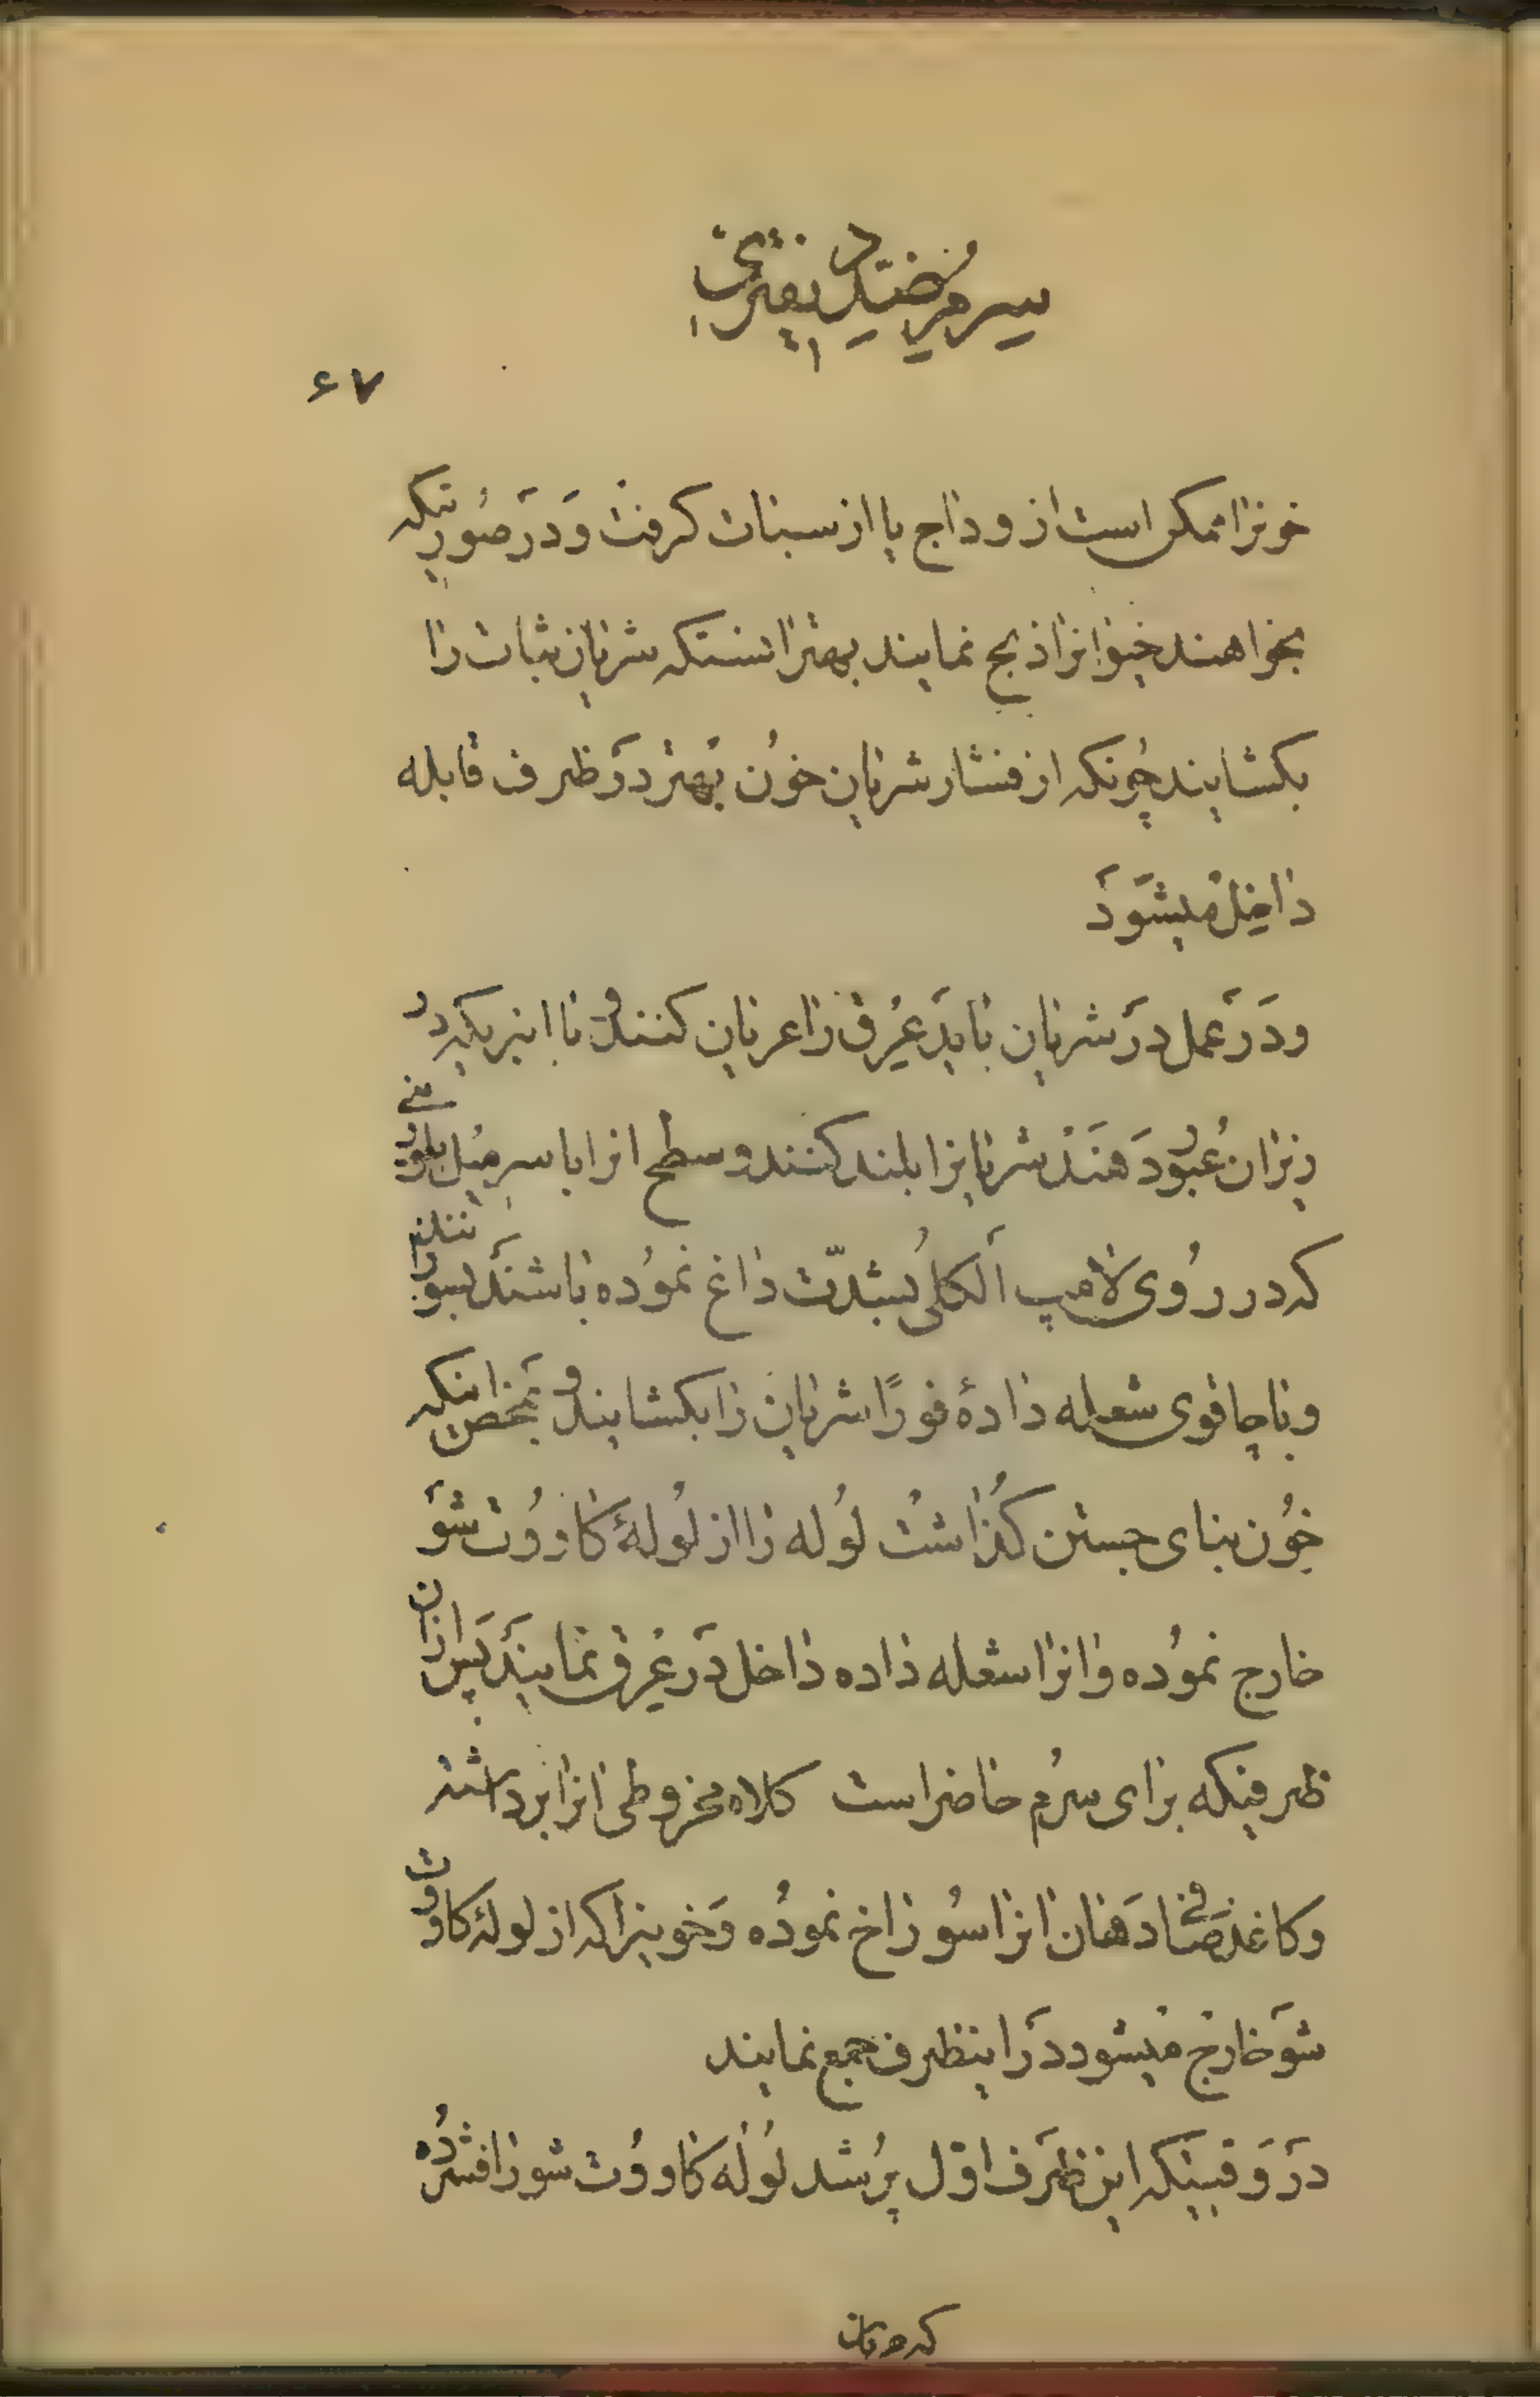 سرم ضد دیفتری
۶۷
خونرا ممکن است از وداج یا از سبات کرفت و در صورتیکه
بخواهند حیوانرا ذبح نمایند بهتر انستکه شریان ثبات را
بکشایند چونکه از فشار شریان خون بهتر در ظرف قابله
داخل میشود
و در عمل در شریان باید عرق را عریان کنند و با انبریکه در
زیر ان عبور دهند شریانرا بلند کنند و سطح انرا با سر میل بلوری
که در روی لامپ الکلی بشدت داغ نموده باشند بسوزانند
و با چاقوی شعله داده فورًا شریان را بکشایند و بمحض اینکه
خون بنای جستن کذاشت لوله را از لولهٔ کاووت شو
خارج نموده و انرا شعله داده داخل در عرق نمایند پس از ان
ظرفیکه برای سرم حاضر است کلاه مخروطی انرا برداشته
و کاغذ صافی دهان انرا سوراخ نموده و خونیرا که از لولهٔ کاووت
شو خارج میشود در اینظرف جمع نمایند
در وقتیکه این ظرف اول پر شد لوله کاووت شو را فشرده
که دهان